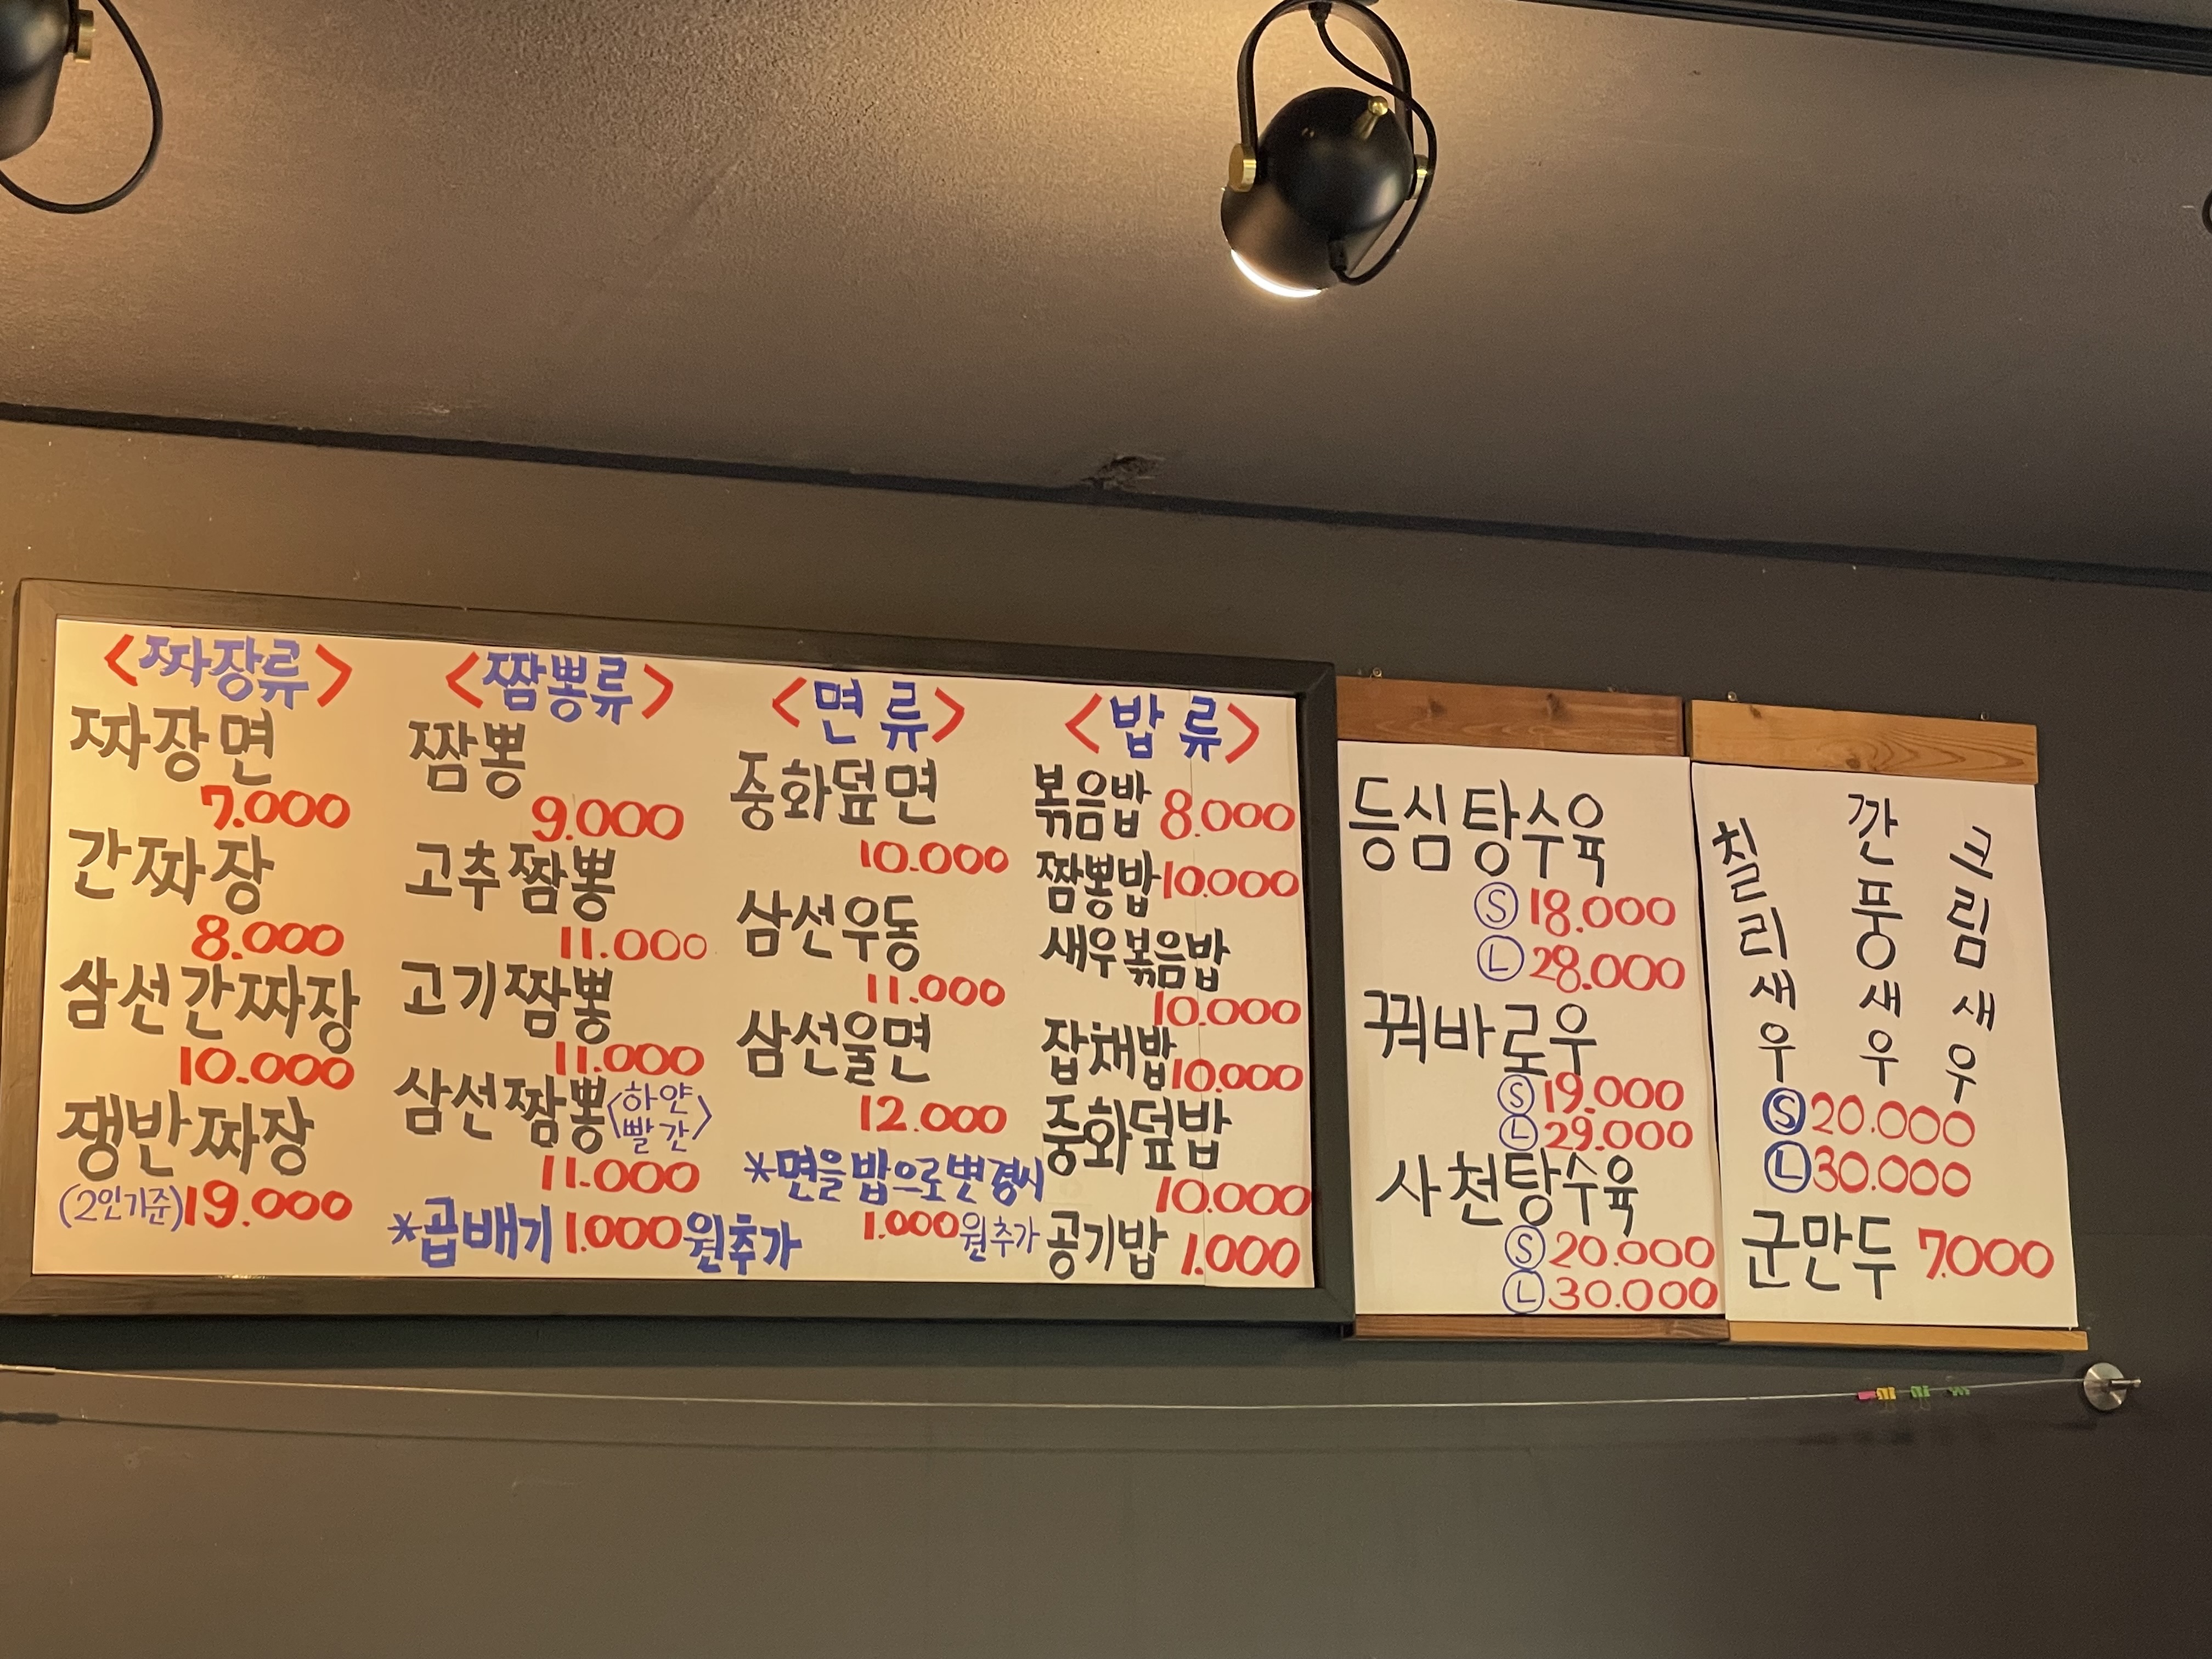 <짜장류>
짜장면
7.000
간짜장
8.000
삼선간짜장
10.000
쟁반짜장
(2인기준)19.000
<짬뽕류>
짬뽕
9.000
고추짬뽕
11.000
고기짬뽕
11.000
삼선짬뽕<하얀
빨간>
11.000
*곱배기 1.000원추가
<면류>
중화덮면
10.000
삼선우동
11.000
삼선울면
12.000
*면을밥으로변경시
1.000원추가
<밥류>
볶음밥 8.000
짬뽕밥 10.000
새우볶음밥
10.000
잡채밥 10.000
중화덮밥
10.000
공기밥 1.000
등심탕수육
Ⓢ 18.000
Ⓛ 28.000
꿔바로우
Ⓢ 19.000
Ⓛ 29.000
사천탕수육
Ⓢ 20.000
Ⓛ 30.000
칠리새우
깐풍새우
크림새우
Ⓢ 20.000
Ⓛ 30.000
군만두 7.000